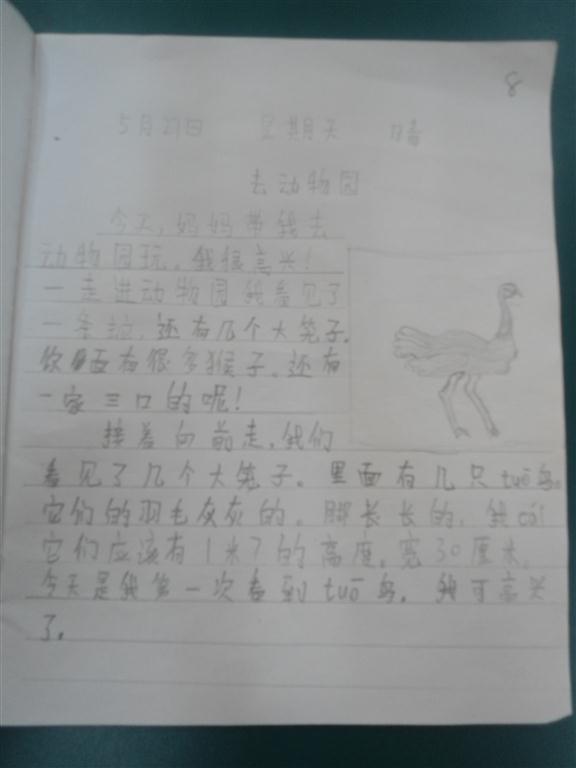 8
5月27日 星期天 晴
去动物园
今天,妈妈带我去
动物园玩。我很高兴!
一走进动物园我看见了
一条 还有几个大笼子.
面有很多猴子。还有
一家三口的呢!
接着向前走,我们
看见了几个大笼子。里面有几只tuō鸟。
它们的羽毛灰灰的。脚长长的,我cāi
它们应该有1米7的高度。宽30厘米。
今天是我第一次看到tuō鸟。我可高兴
了。